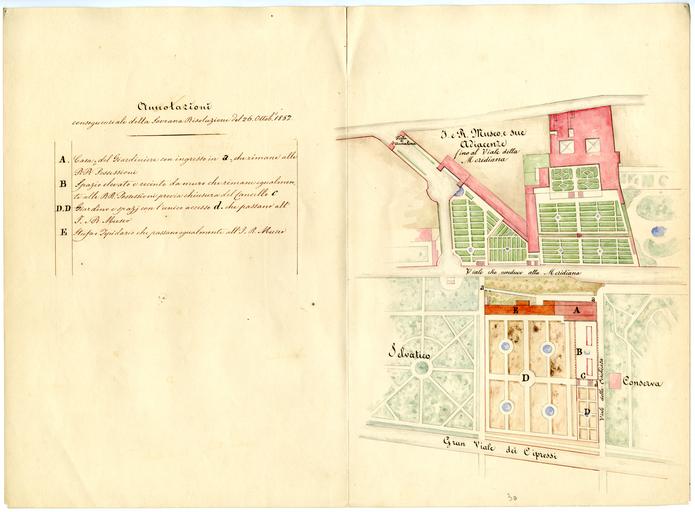 Annotazioni
consequenziale della Sovrana Risoluzione del 26. Ottob.e 1857
A. Casa, del Giardiniere con ingresso in a, da rimane alle
RR. Possessioni
B Spazio elevato e recinto da muro che rimane egualmen=
te alle RR. Possessioni previa chiusura del Cancello c
D.D Giardino e spazj con l'unico accesso d. che passano all'
I. e R. Museo
E Stufa e Tepidario che passano egualmente all'I. R. Museo
I. e R. Museo, e sue
Adiacenze
fino al Viale della
Meridiana
Viale che conduce alla Meridiana
a
a
E
A
B
C
D
D
Selvatico
Conserva
Gran Viale dei Cipressi
30